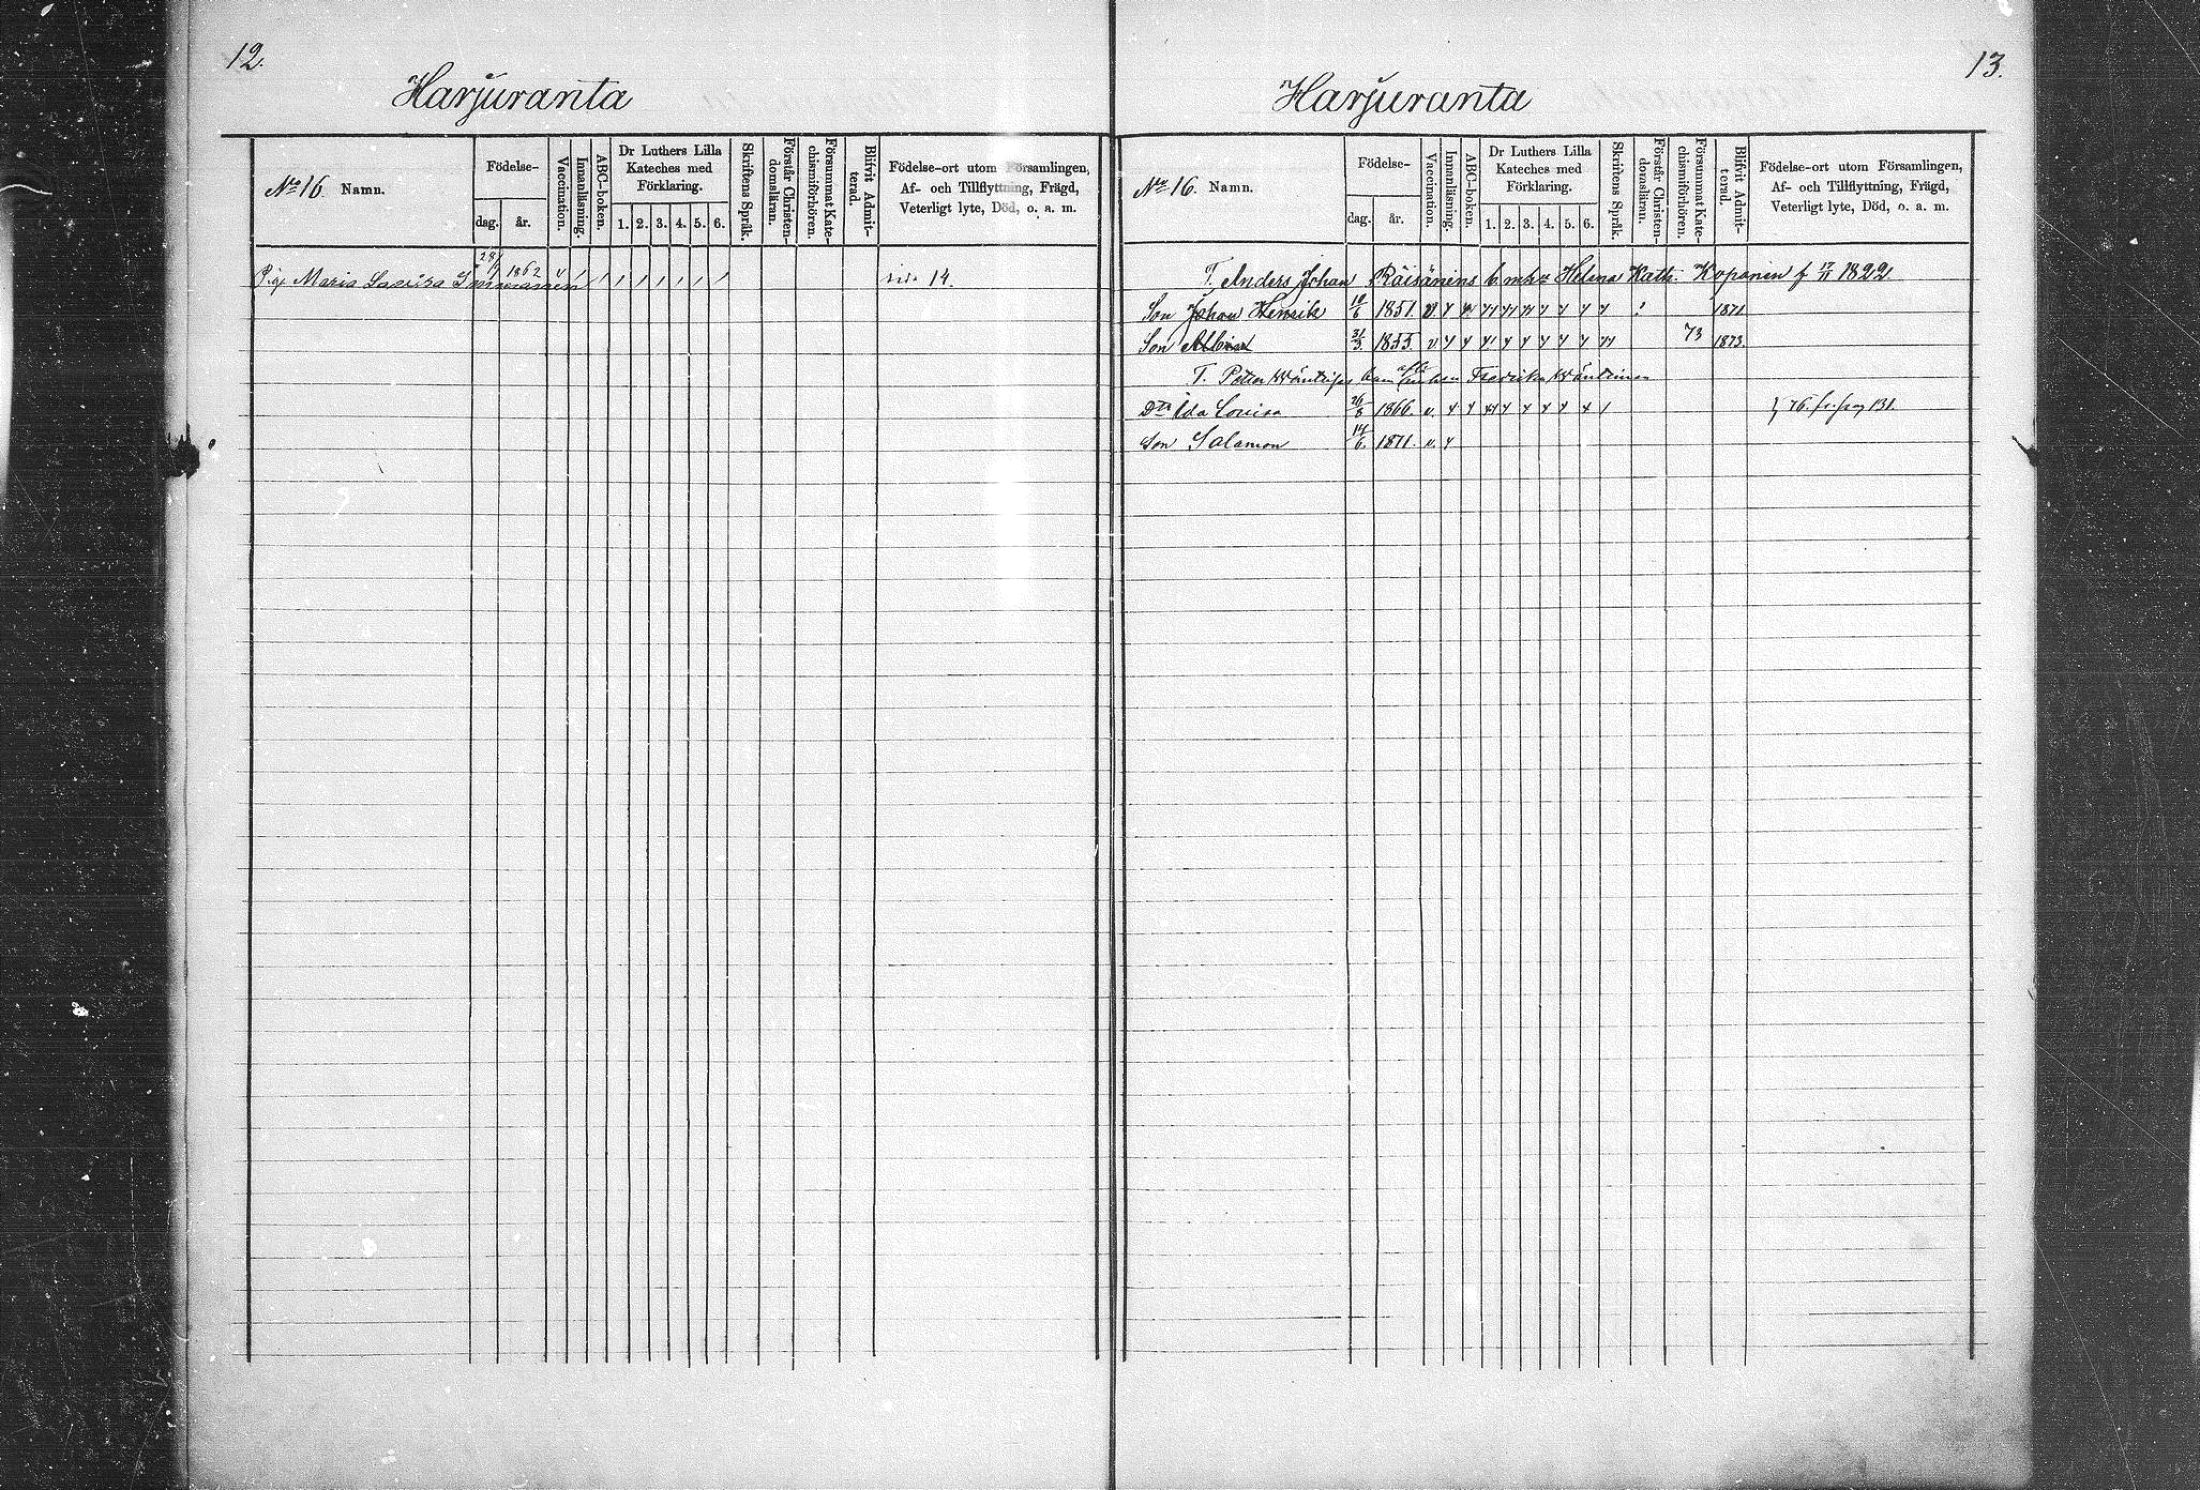 12.
Harjuranta
No 16. Namn.
Födelse-
dag. år.
Vaccination.
Innanläsning.
ABC-boken.
Dr Luthers Lilla
Kateches med
Förklaring.
1. 2. 3. 4. 5. 6.
Skriftens Språk.
Förstår Christen-
domsläran.
Försummat Kate-
chismiförhören.
Blifvit Admit-
terad.
Födelse-ort utom Församlingen,
Af- och Tillflyttning, Frägd,
Veterligt lyte, Död, o. a. m.
Pig. Maria Lovisa Immonen 28/9 1862 v / / / / / / / / sid. 14.
13.
Harjuranta
No 16. Namn.
Födelse-
dag. år.
Vaccination.
Innanläsning.
ABC-boken.
Dr Luthers Lilla
Kateches med
Förklaring.
1. 2. 3. 4. 5. 6.
Skriftens Språk.
Förstår Christen-
domsläran.
Försummat Kate-
chismiförhören.
Blifvit Admit-
terad.
Födelse-ort utom Församlingen,
Af- och Tillflyttning, Frägd,
Veterligt lyte, Död, o. a. m.
T. Anders Johan Räisänens b. m. h. Helena Kath. Koponen f 17/11 1822
Son Johan Henrik 10/6 1851. v. 1871
Son Albin 31/3. 1855 v 73 1873.
T. Petter barn Fredrika
Dtr Ida Lovisa 26/8 1866. v. 76. fr. pag 131.
Son Salamon 14/6. 1871. v.